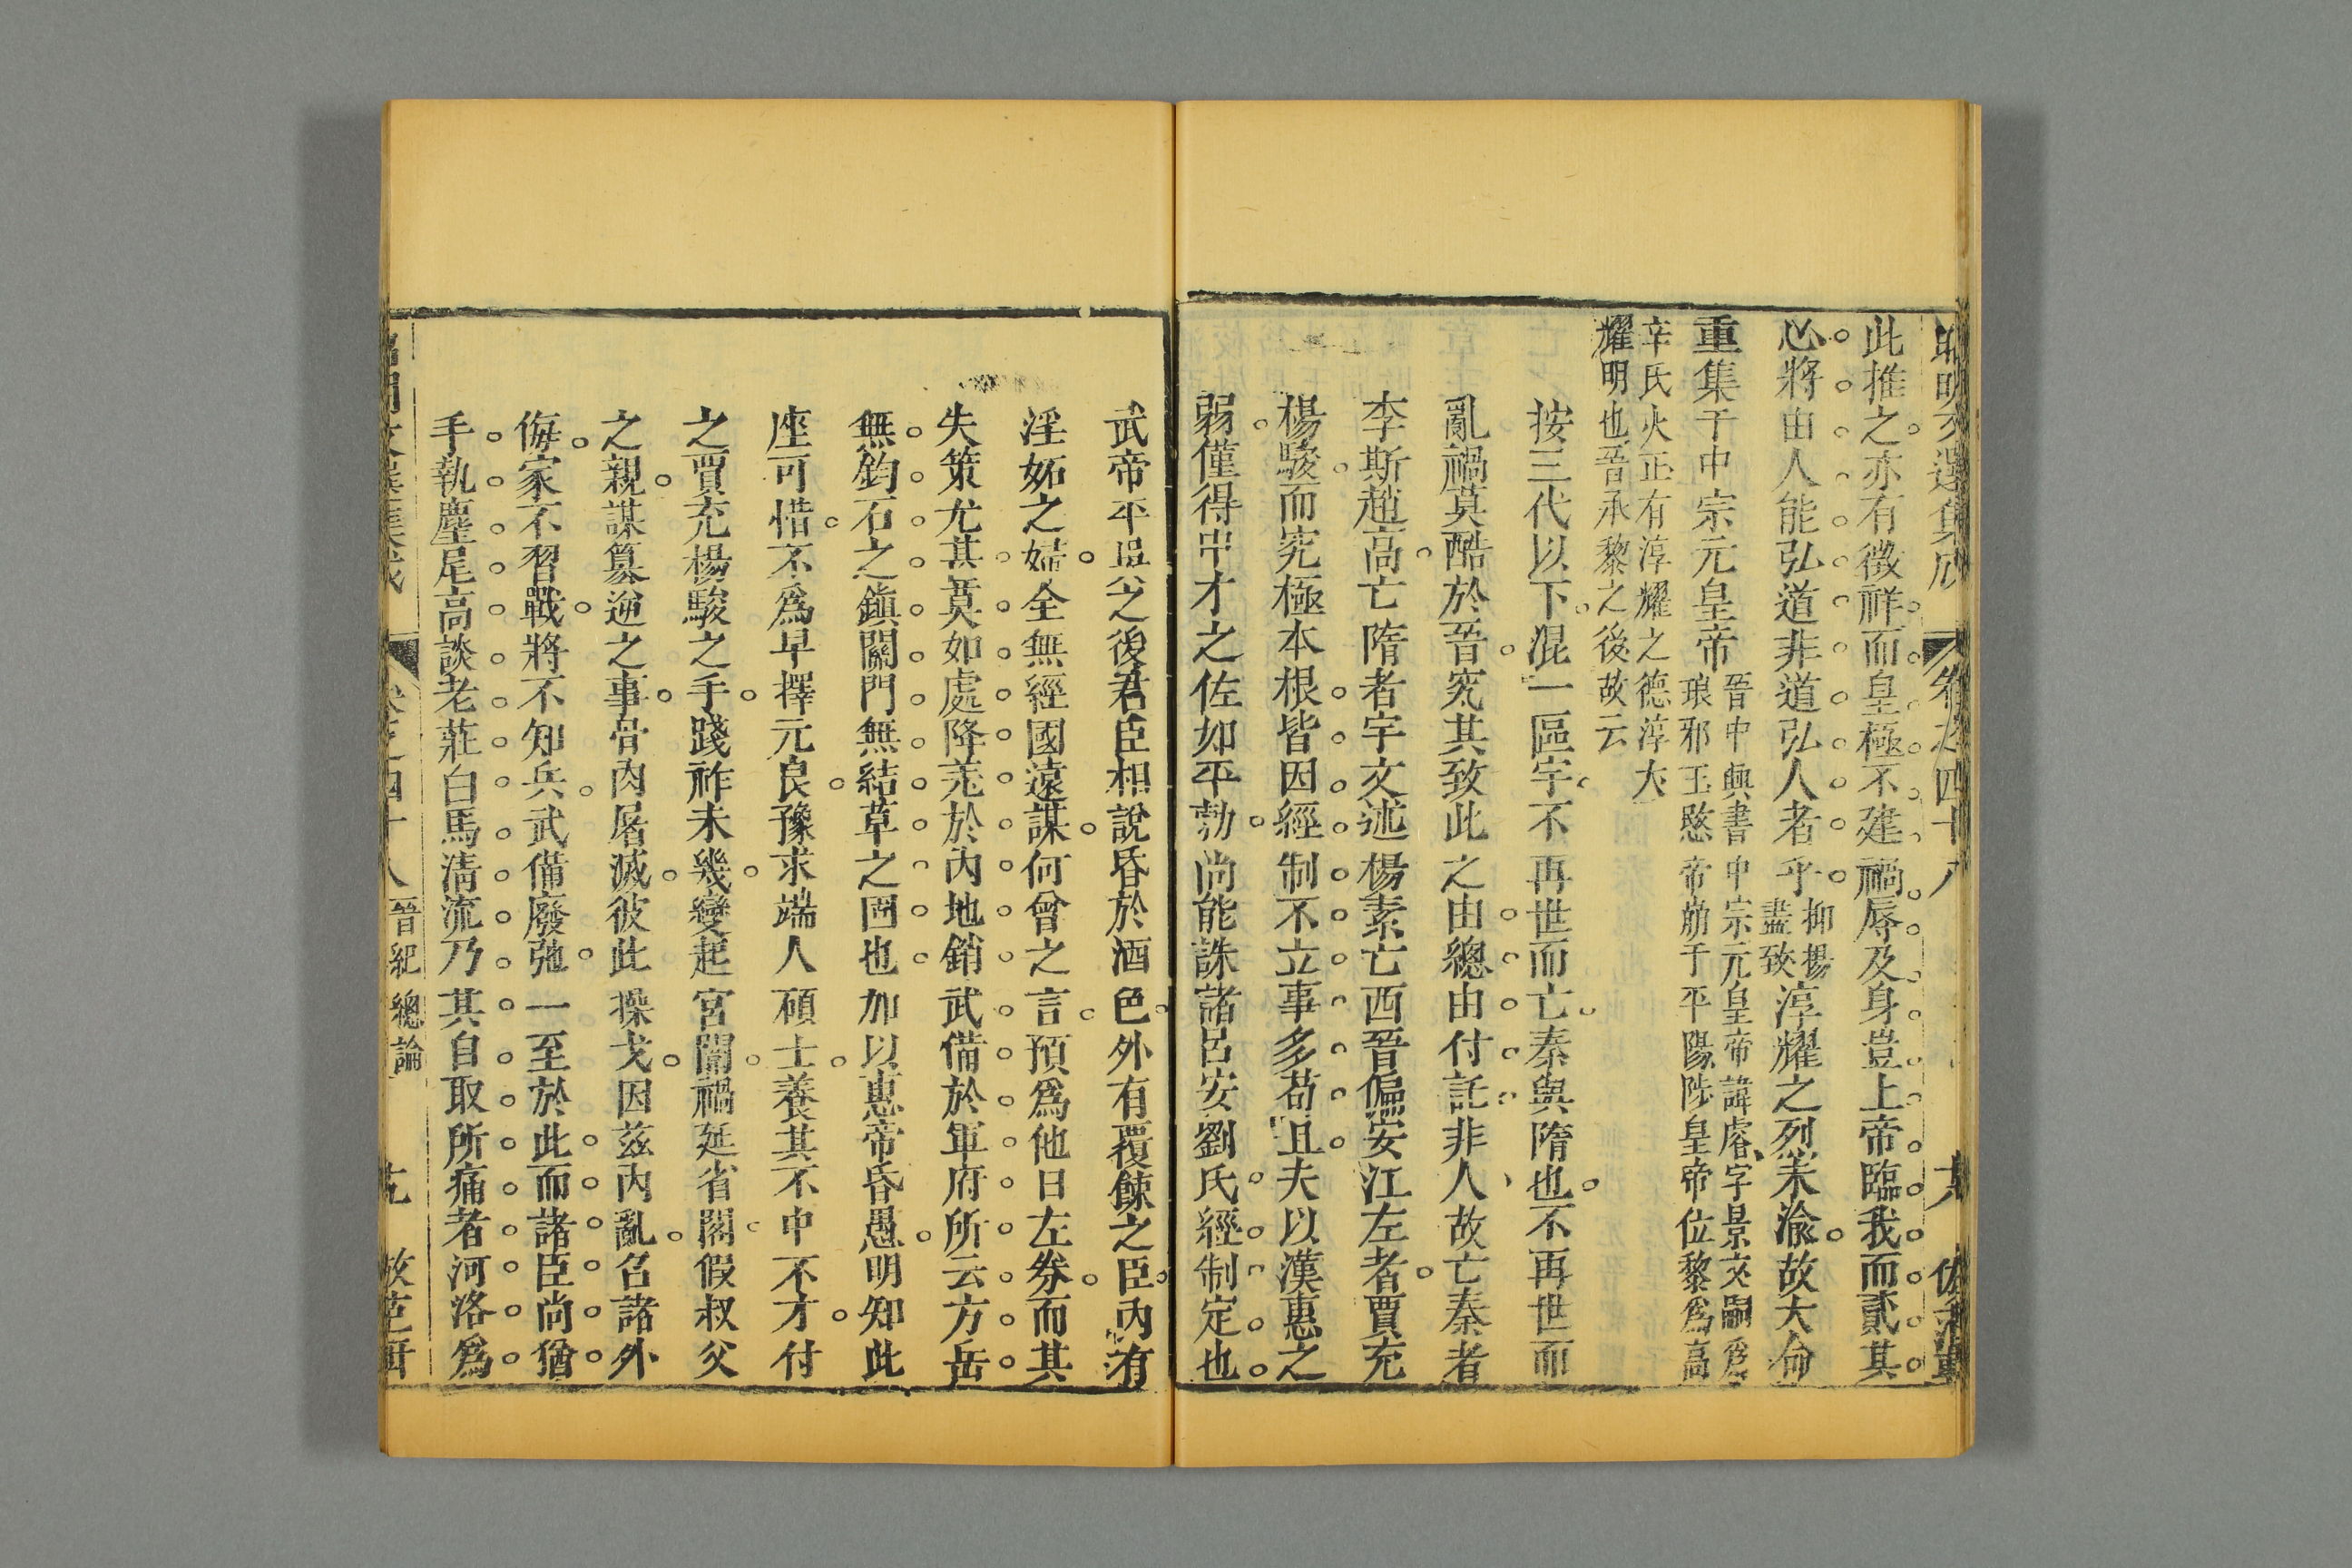 昭明文選集成 卷之四十八 六
此推之亦有徵祥而皇極不建禍辱及身豈上帝臨我而貳其
心將由人能弘道非道弘人者乎抑揚盡致淳耀之烈未渝故大命
重集于中宗元皇帝晉中興書中宗元皇帝諱睿字景文嗣爲琅邪王愍帝崩于平陽陟皇帝位黎爲高
辛氏火正有淳耀之德淳大
耀明也晉承黎之後故云
按三代以下混一區宇不再世而亡秦與隋也不再世而
亂禍莫酷於晉究其致此之由總由付託非人故亡秦者
李斯趙高亡隋者宇文述楊素亡西晉偏安江左者賈充
楊駿而究極本根皆因經制不立事多苟且夫以漢惠之
弱僅得中才之佐如平勃尚能誅諸呂安劉氏經制定也
武帝平吳之後君臣相說昏於酒色外有覆餗之臣內有
淫妬之婦全無經國遠謀何曾之言預爲他日左券而其
失策尤甚莫如處降羌於內地銷武備於軍府所云方岳
無鈞石之鎮關門無結草之固也加以惠帝昏愚明知此
座可惜不爲早擇元良豫求端人碩士養其不中不才付
之賈充楊駿之手踐祚未幾變起宮闈禍延省閣假叔父
之親謀篡逆之事骨肉屠滅彼此操戈因茲內亂召諸外
侮家不習戰將不知兵武備廢弛一至於此而諸臣尚猶
手執麈尾高談老莊白馬清流乃其自取所痛者河洛爲
昭明文選集成 卷之四十八 晉紀總論